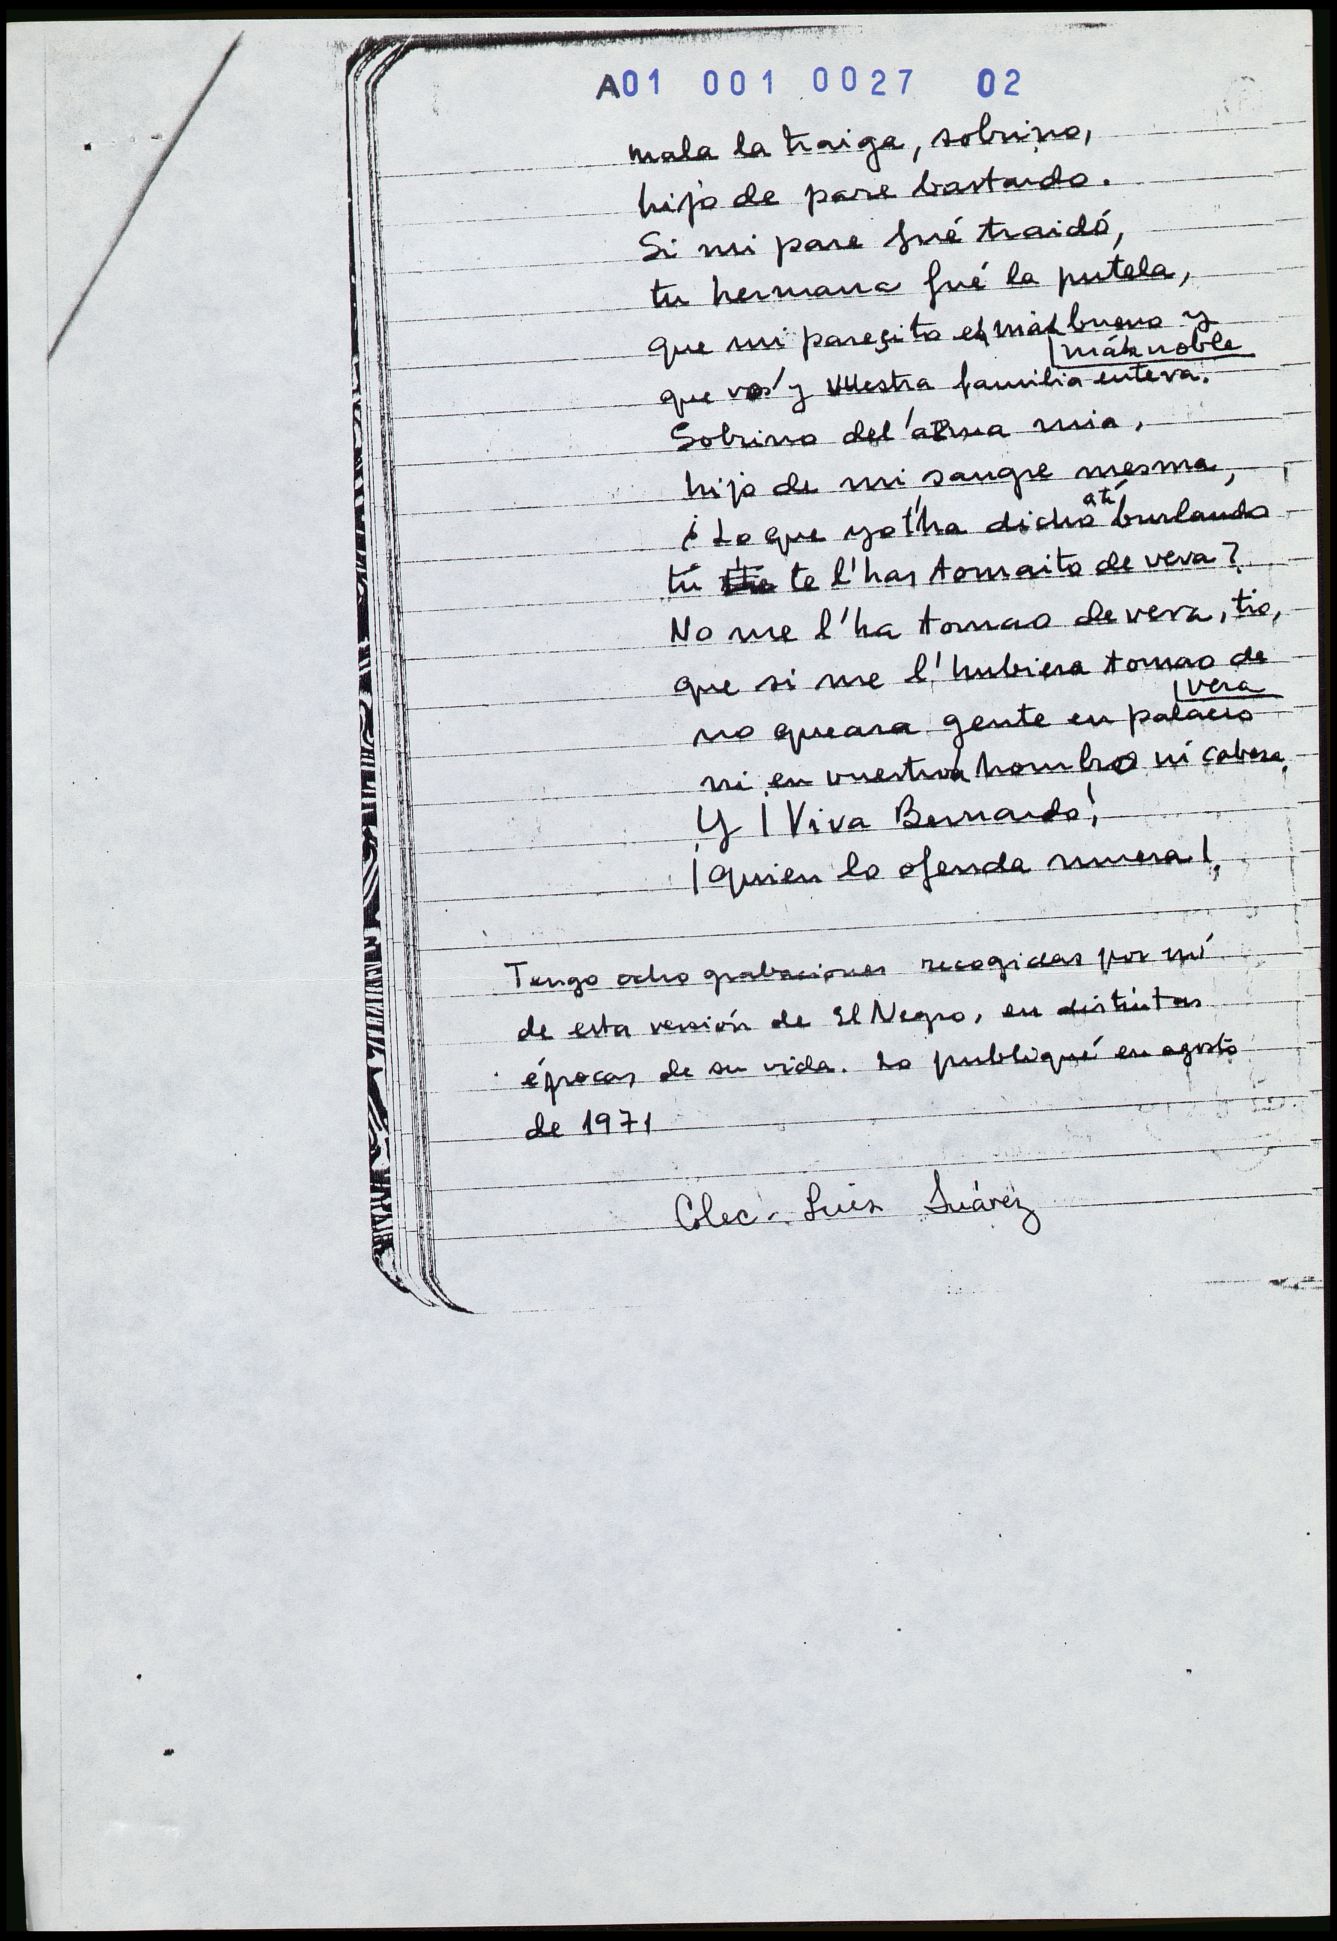 A01 001 0027 02
mala la traiga, sobrino,
hijo de pare bastardo.
Si mi pare fué traidó,
tu hermana fué la putela,
que mi pareçito es más bueno y
más noble
que vos y vuestra familia entera.
Sobrino del'arma mia,
hijo de mi sangre mesma,
¿Lo que yo t'ha dicho a tí burlando
tú te l'has tomaito de vera?
No me l'ha tomao de vera, tio,
que si me l'hubiera tomao de
vera
no queara gente en palacio
ni en vuestro hombro ni cabesa.
Y ¡Viva Bernardo!
¡quien lo ofenda muera!,
Tengo ocho grabaciones recogidas por mí
de esta versión de El Negro, en distintas
épocas de su vida. Lo publiqué en agosto
de 1971
Colec. Luis Suárez